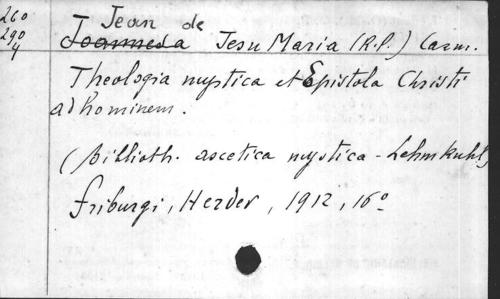 260
290
4
Jean de
Joannes a Jesu Maria (R.P.) Carm.
Theologia mystica et Epistola Christi
ad hominem.
(Biblioth. ascetica mystica - Lehmkuhl)
Friburgi, Herder, 1912, 16º